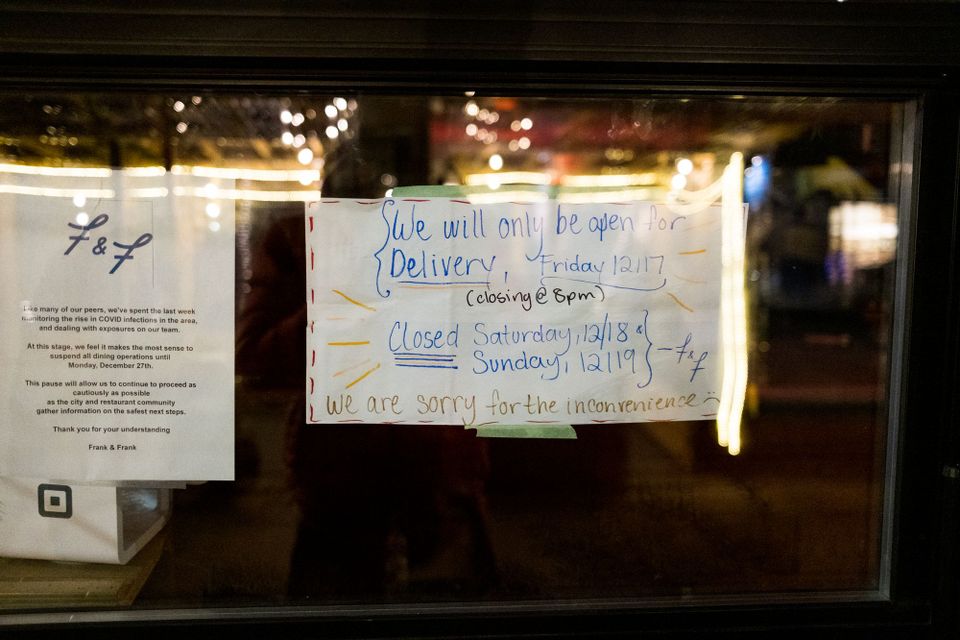 F & F
Like many of our peers, we've spent the last week
monitoring the rise in COVID infections in the area,
and dealing with exposures on our team.
At this stage, we feel it makes the most sense to
suspend all dining operations until
Monday, December 27th.
This pause will allow us to continue to proceed as
cautiously as possible
as the city and restaurant community
gather information on the safest next steps.
Thank you for your understanding
Frank & Frank
We will only be open for
Delivery, Friday 12/17
(closing @ 8pm)
Closed Saturday, 12/18 &
Sunday, 12/19
- F & F
We are sorry for the inconvenience :-